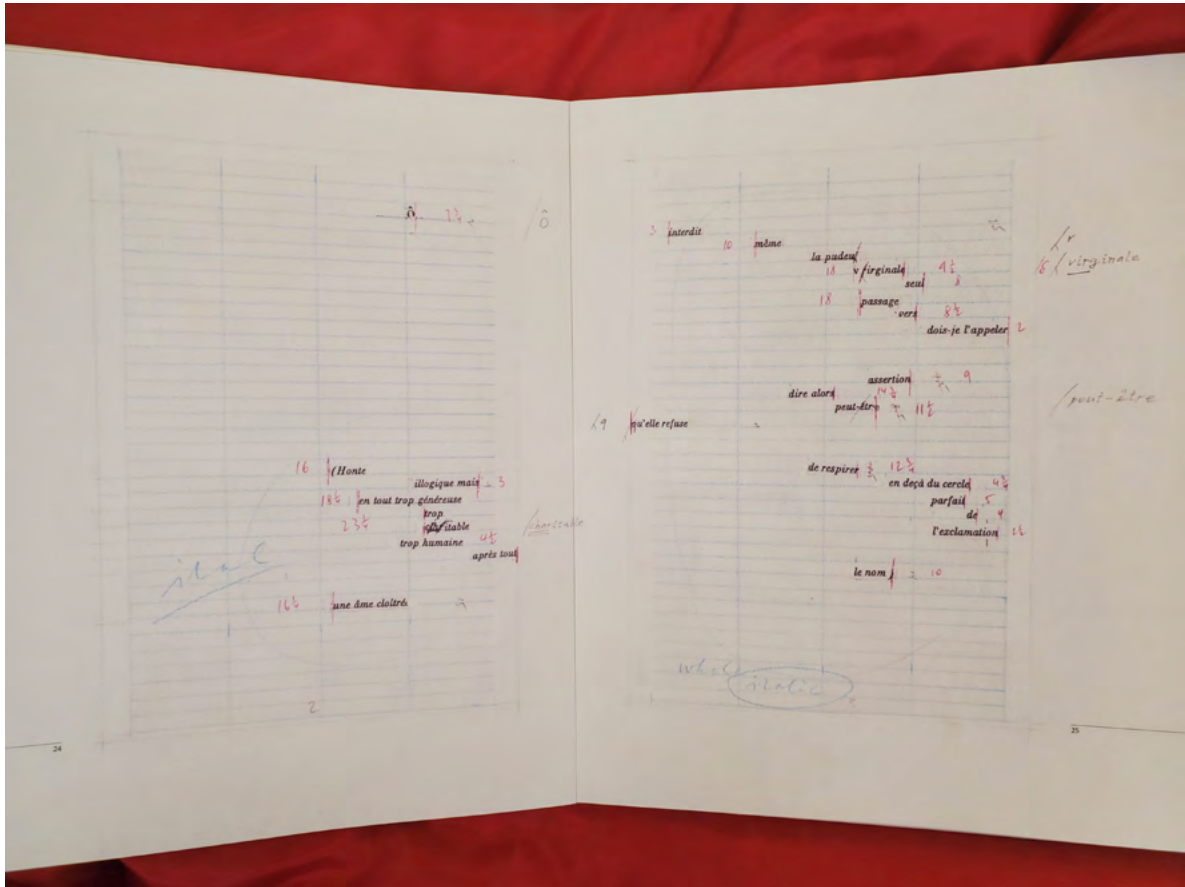 Ô 2 ¼ / Ô
16 (Honte
illogique mais 3
18 ½ en tout trop généreuse
trop
23 ½ itable / charitable
trop humaine 4 ½
après tout
ital
16 ½ une âme cloîtrée
2
24
3 interdit
10 même
la pudeu / r
18 v irginale 9 ½ 16 / virginale
seul 8
18 passage
vers 8 ½
dois-je l'appeler 2
assertion 9
dire alors 14 ½
peut-être 11 ½ / peut-être
/ 9 qu'elle refuse
de respirer 12 ¾
en deçà du cercle 4 ¾
parfait 5
de 4
l'exclamation 2 ½
le nom 10
whole italic
25